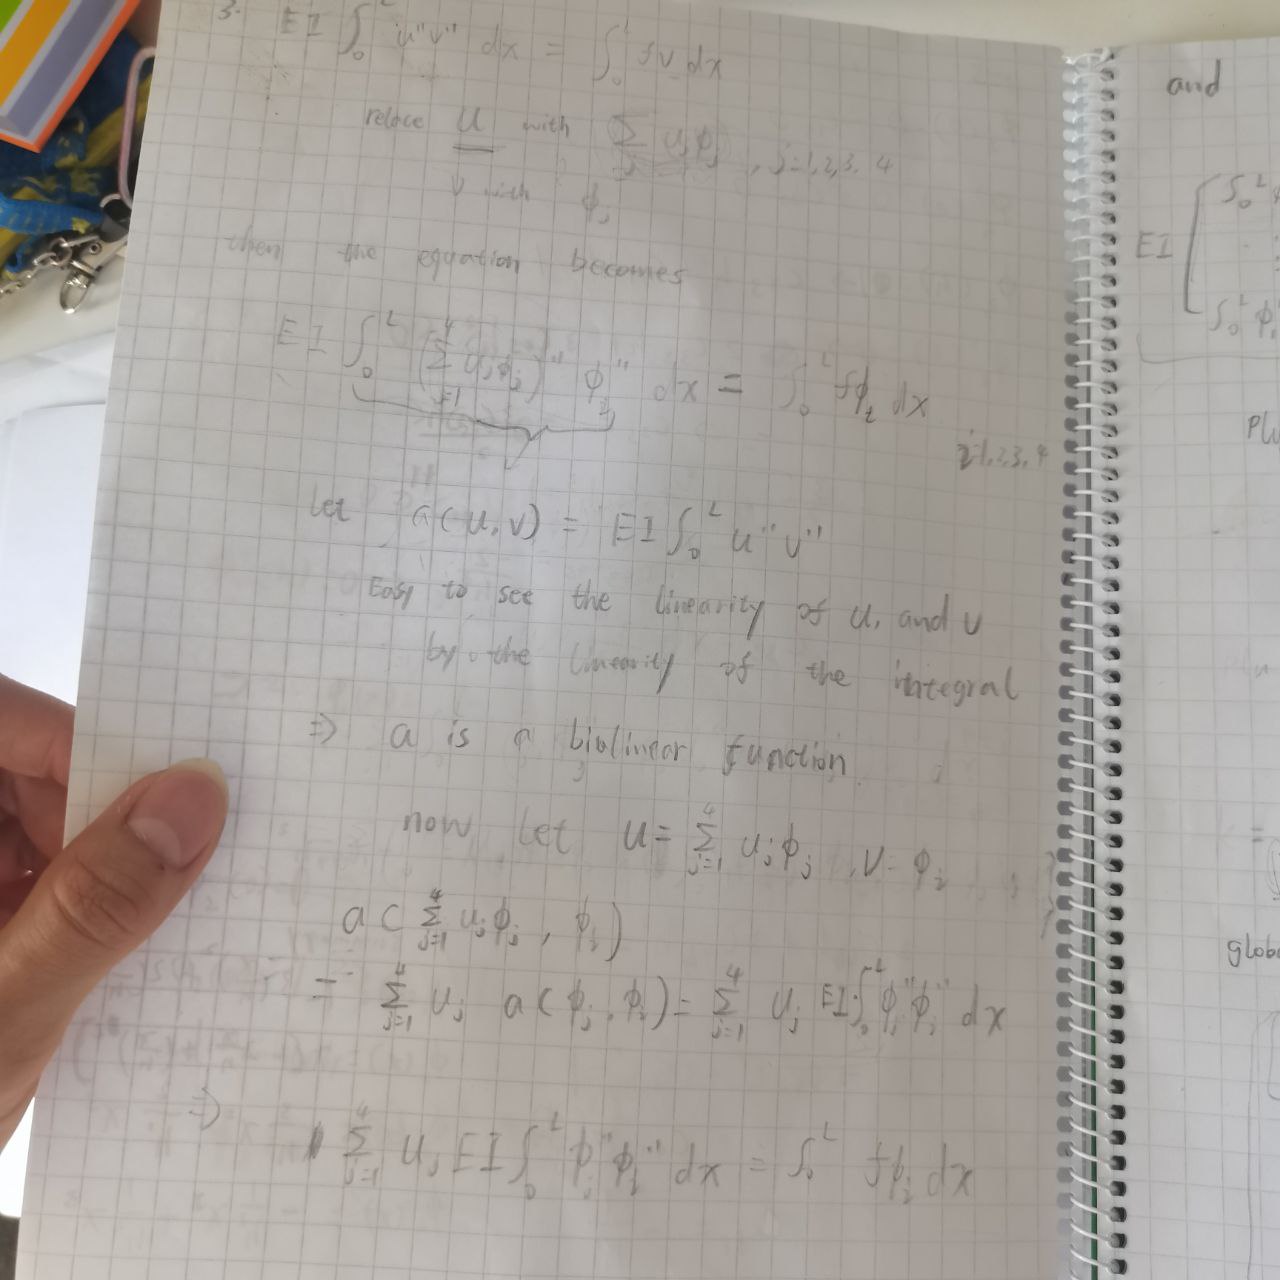 3. EI ∫₀ᴸ u''v'' dx = ∫₀ᴸ fv dx
reloce u with ∑ⱼ uⱼϕⱼ , j=1,2,3,4
v with ϕᵢ
then the equation becomes
EI ∫₀ᴸ (∑ⱼ₌₁⁴ uⱼϕⱼ)'' ϕᵢ'' dx = ∫₀ᴸ fϕᵢ dx
i=1,2,3,4
let a(u,v) = EI ∫₀ᴸ u'' v''
Easy to see the linearity of u, and v
by the linearity of the integral
⇒ a is a function
now let u = ∑ⱼ₌₁⁴ uⱼϕⱼ , v = ϕᵢ
a(∑ⱼ₌₁⁴ uⱼϕⱼ , ϕᵢ)
= ∑ⱼ₌₁⁴ uⱼ a(ϕⱼ, ϕᵢ) = ∑ⱼ₌₁⁴ uⱼ EI ∫₀ᴸ ϕⱼ''ϕᵢ'' dx
⇒ ∑ⱼ₌₁⁴ uⱼ EI ∫₀ᴸ ϕⱼ''ϕᵢ'' dx = ∫₀ᴸ fϕᵢ dx
and
EI [ ∫₀ᴸ
∫₀ᴸ ϕ